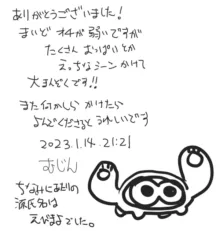 ありがとうございました!
まいど オチが弱いですが
たくさん おっぱいとか
えっちなシーン かけて
大まんぞくです!!
また何かしら かけたら
よんでくださると うれしいです
2023.1.14.21:21
むじん
ちなみに
源氏名は
えびままでした。